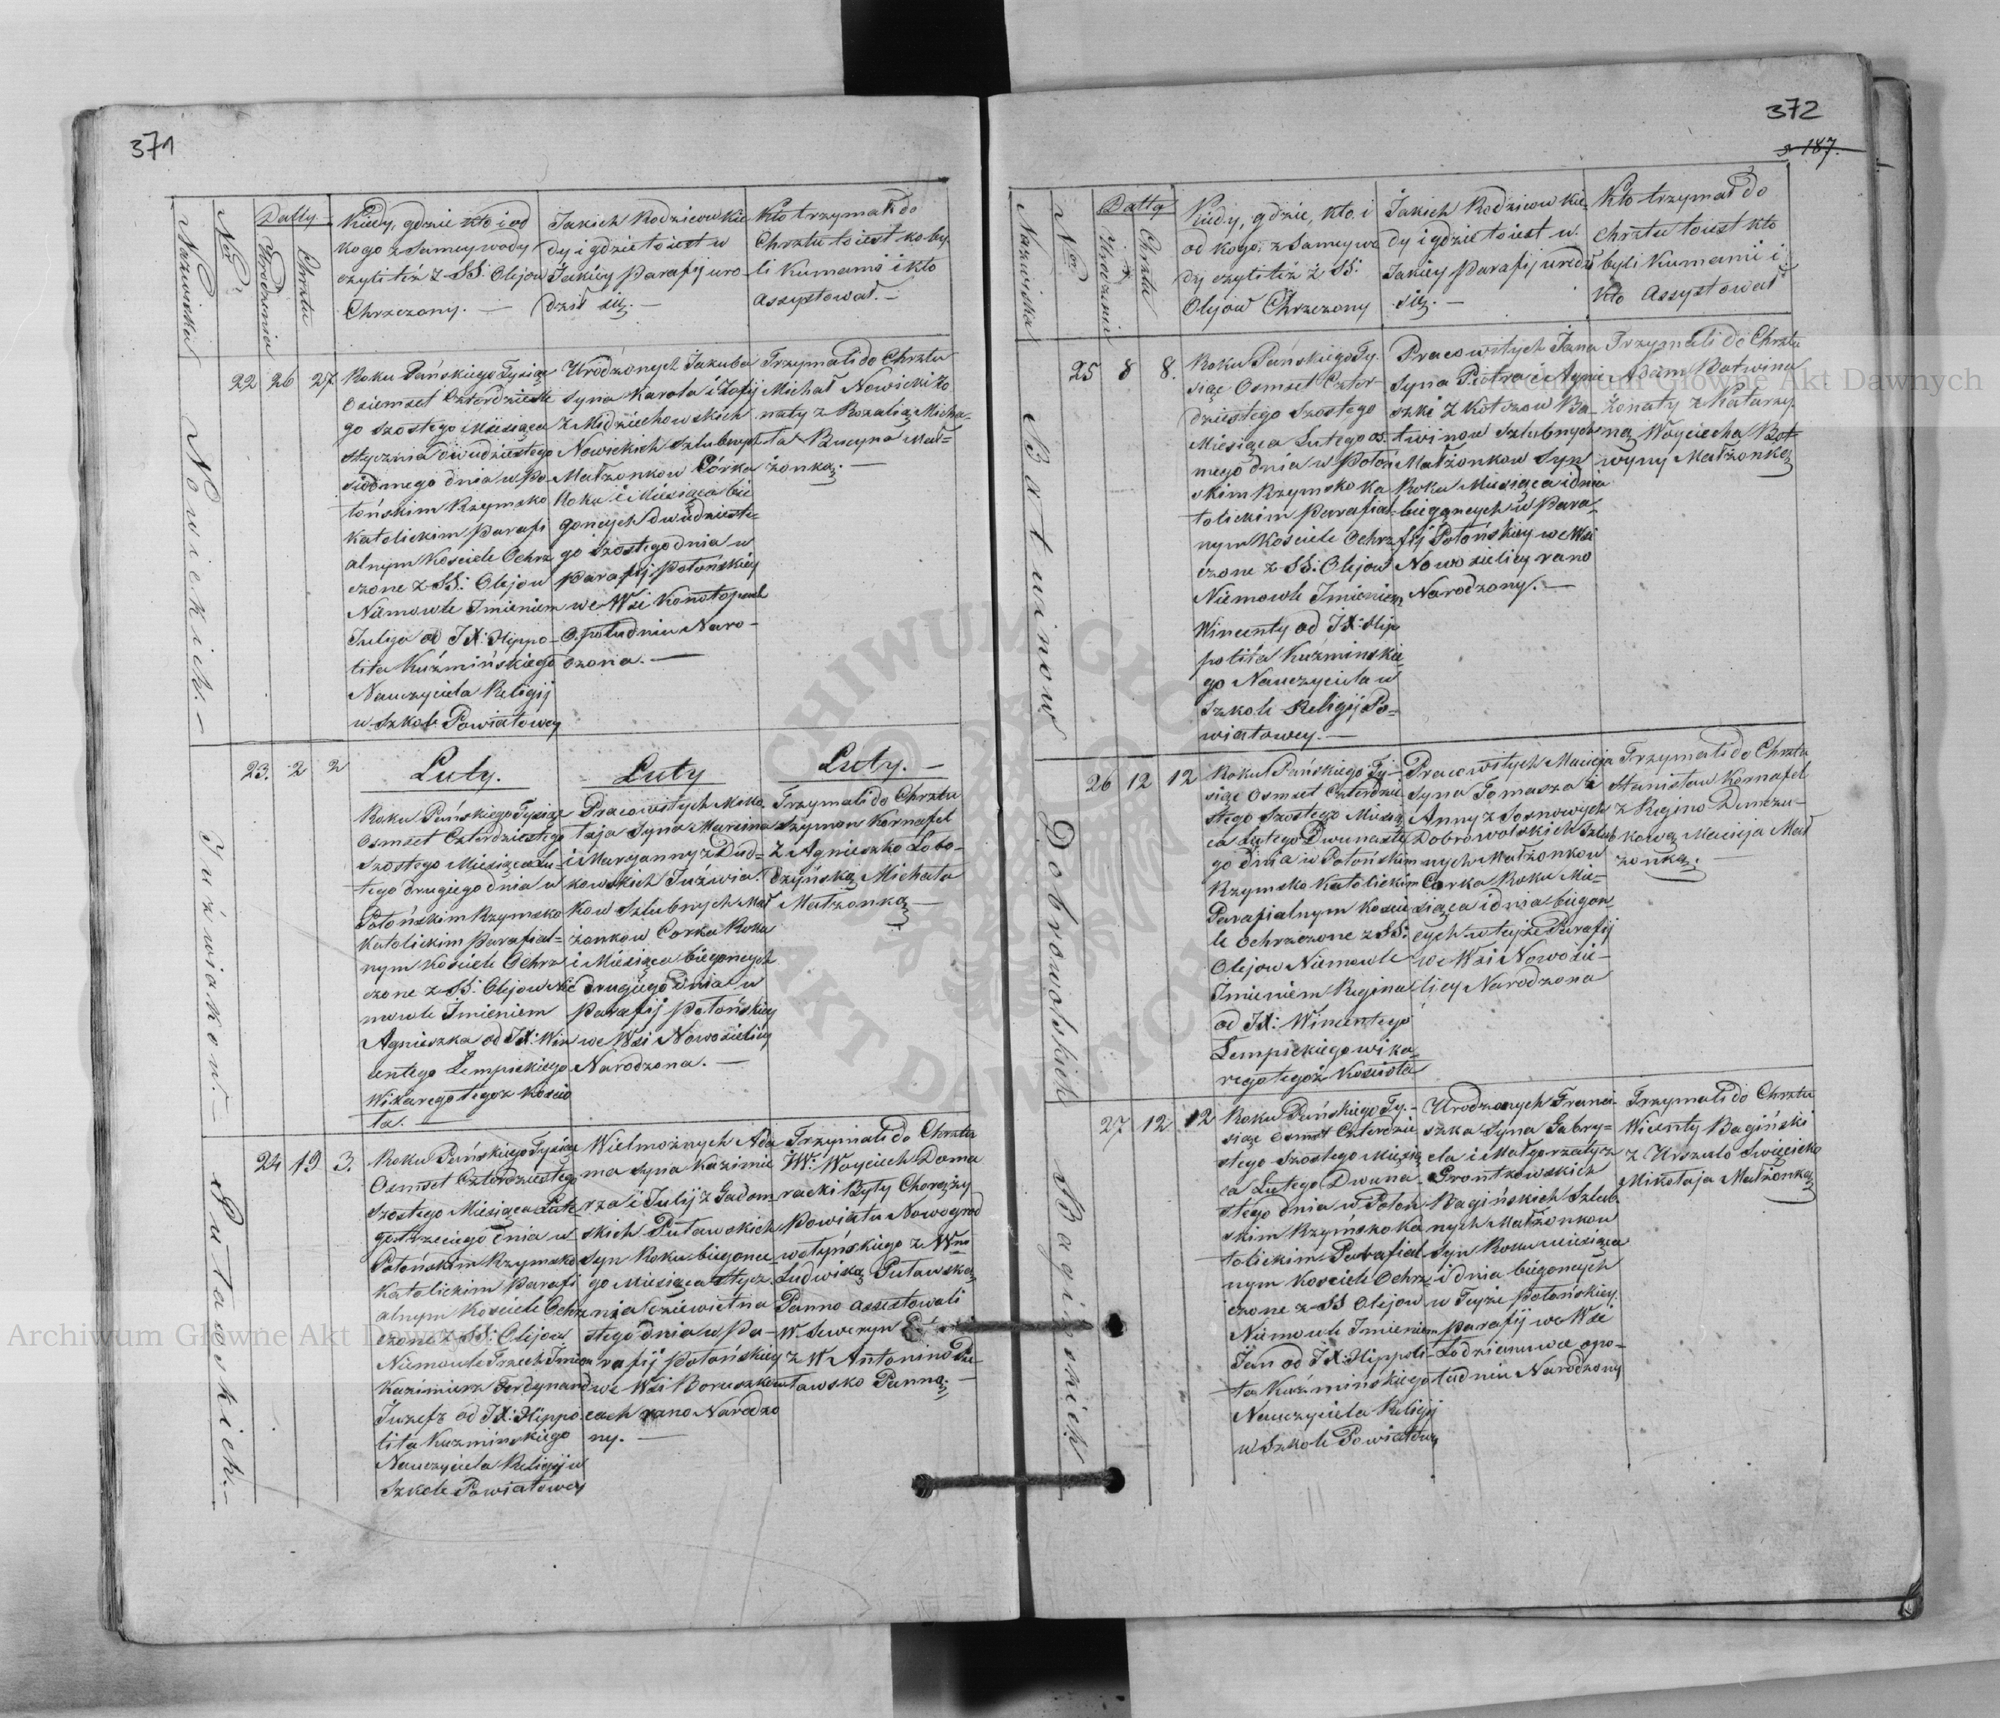 371
Nazwiska
Nro
Datty
Urodzenia
Chrztu
Kiedy, gdzie kto i od
kogo z Samey wody
czyli też z SS. Olejow
Chrzczony. —
Jakich Rodzicow Kie
dy i gdzie to iest w
Jakiey Parafij uro
dził się. —
Kto trzymał do
Chrztu to iest kto by
li Kumami i kto
Assystował. —
Nowickich. —
22
26
27
Roku Pańskiego Tysiąc
Osiemset Czterdzieste
go Szóstego Miesiąca
Stycznia dwudziestego
siódmego dnia w Po
łońskim Rzymsko
Katolickim Parafi
alnym Kosciele Ochrz
czone z SS: Olejow
Niemowle Imieniem
Julija od JX: Hippo
lita Kuźmińskiego
Nauczyciela Religij
w Szkole Powiatowey
Urodzonych Jakuba
Syna Karola i Zofij
z Miedziechowskich
Nowickich Szlubnych
Małżonkow Córka
Roku i Miesiąca bie
gących dwudzieste
go Szóstego dnia w
Parafij Połońskiey
we Wsi Konotopach
O południu Naro—
dzona. —
Trzymali do Chrztu
Michał Nowicki żo
naty z Rozalią Micha
ła Bucyna Mał=
żonką. —
Juźwiakow. —
23.
2
2
Luty.
Roku Pańskiego Tysiąc
Osmset Czterdziestego
Szostego Miesiąca Lu=
tego drugiego dnia w
Połońskim Rzymsko
Katolickim Parafial=
nym Kosciele Ochrz
czone z SS: Olejow Nie
mowle Imieniem
Agnieszka od JX: Win
centego Lempickiego
Wikarego tegoz Koscio
ła. —
Luty
Pracowitych Miko
łaja Syna Marcina
i Maryanny z Dud=
kowskich Juźwia=
kow Szlubnych Mał
żonkow Corka Roku
i Miesiąca biegących
drugiego Dnia w
Parafij Połońskiey
we Wsi Nowosielicy
Narodzona. —
Luty. —
Trzymali do Chrztu
Szymon Kornafel
z Agnieszką Łobo—
dzyńską Michała
Małżonką —
Puławskich. —
24
19
3.
Roku Pańskiego Tysiąc
Osmset Czterdziestego
Szostego Miesiąca Lute
go trzeciego dnia w
Połońskim Rzymsko
Katolickim Parafi
alnym Kosciele Ochrz
czone z SS: Olejow
Niemowle Trzech Imion
Kazimierz Ferdynand
Juzefz od JX: Hippo
lita Kuzmińskiego
Nauczyciela Religij w
Szkole Powiatowey
Wielmożnych Ada
ma Syna Kazimie
rza i Julij z Gadom
skich Puławskich
Syn Roku biegonce
go Miesiąca Stycz
nia dziewietna
stego dnia w Pa—
rafij Połońskiey
we Wsi Boruszkow
cach rano Narodzo
ny. —
Trzymali do Chrztu
JW: Woyciech Doma
racki Były Chorąży
Powiatu Nowogrod
wołyńskiego z Wną
Ludwiką Puławską
Panno Assistowali
W Seweryn
z W Antonino Pu—
ławsko Panną. —
372
187.
Nazwiska
Nro
Datty
Urodzenia
Chrztu
Kiedy, gdzie, kto i
od kogo, z Samey wo
dy czyli też z SS:
Olejow Chrzczony
Jakich Rodzicow kie
dy i gdzie to iest w
Jakiey Parafij urodz
się. —
Kto trzymał do
chrztu to iest kto
byli Kumami i
Kto Assystował
Batwinow
25
8
8.
Roku Pańskiego Ty=
siąc Osmset Czter—
dziestego Szostego
Miesiąca Lutego os=
mego dnia w Połoń
skim Rzymsko Ka
tolickim Parafial=
nym Kosciele Ochrz
czone z SS: Olejow
Niemowle Imieniem
Wincenty od JX: Hip
polita Kuzminskie
go Nauczyciela w
Szkole Religij Po=
wiatowey. —
Pracowitych Jana
Syna Piotra i Agnie
szki z Kotczow Ba—
twinow Szlubnych
Małżonkow Syn
Roku Miesiąca i dnia
biegących w Para—
fij Połońskiey we Wsi
Nowosielicy rano
Narodzony. —
Trzymali do Chrztu
Adam Batwina
Żonaty z Katarzy
ną Woyciecha Bot
wyny Małżonką
Dobrowolskich
26
12
12
Roku Pańskiego Ty—
siąc Osmset Czterdzie
stego Szostego Miesią
ca Lutego Dwunaste
go dnia w Połońskim
Rzymsko Katolickim
Parafialnym Koscie
le Ochrzczone z SS:
Olejow Niemowle
Imieniem Regina
od JX: Wincentego
Lempickiego wika
rego tegoż Kosciola
Pracowitych Macieja
Syna Tomasza i
Anny z Sosnowych
Dobrowolskich Szlub
nych Małżonkow
Corka Roku Mie—
siąca i dnia biegon
cych w teyże Parafij
we Wsi Nowosie—
licy Narodzona
Trzymali do Chrztu
Stanisław Kornafel
z Regino Dunczu—
kową Macieja Mał
żonką. —
Baginskich
27
12
12
Roku Pańskiego Ty—
siąc Osmset Czterdzie
stego Szostego Miesią
ca Lutego Dwuna
stego dnia w Połoń
skim Rzymsko Ka
tolickim Parafial
nym Kosciele Ochrz
czone z SS Olejow
Niemowle Imieniem
Jan od JX: Hippoli—
ta Kuźmińskiego
Nauczyciela Religij
w Szkole Powiatowey
Urodzonych Franci
szka Syna Gabry—
ela i Małgorzaty z
Grontkowskich
Bagińskich Szlub
nych Małżonkow
Syn Roku miesiąca
i dnia biegoncych
w Teyże Połońskiey
Parafij we Wsi
Łodzianowce opo—
łudniu Narodzony
Trzymali do Chrztu
Wicenty Bagiński
z Urszulo Swięcicko
Mikołaja Małżonką
Archiwum Główne Akt Dawnych
Archiwum Główne Akt Dawnych